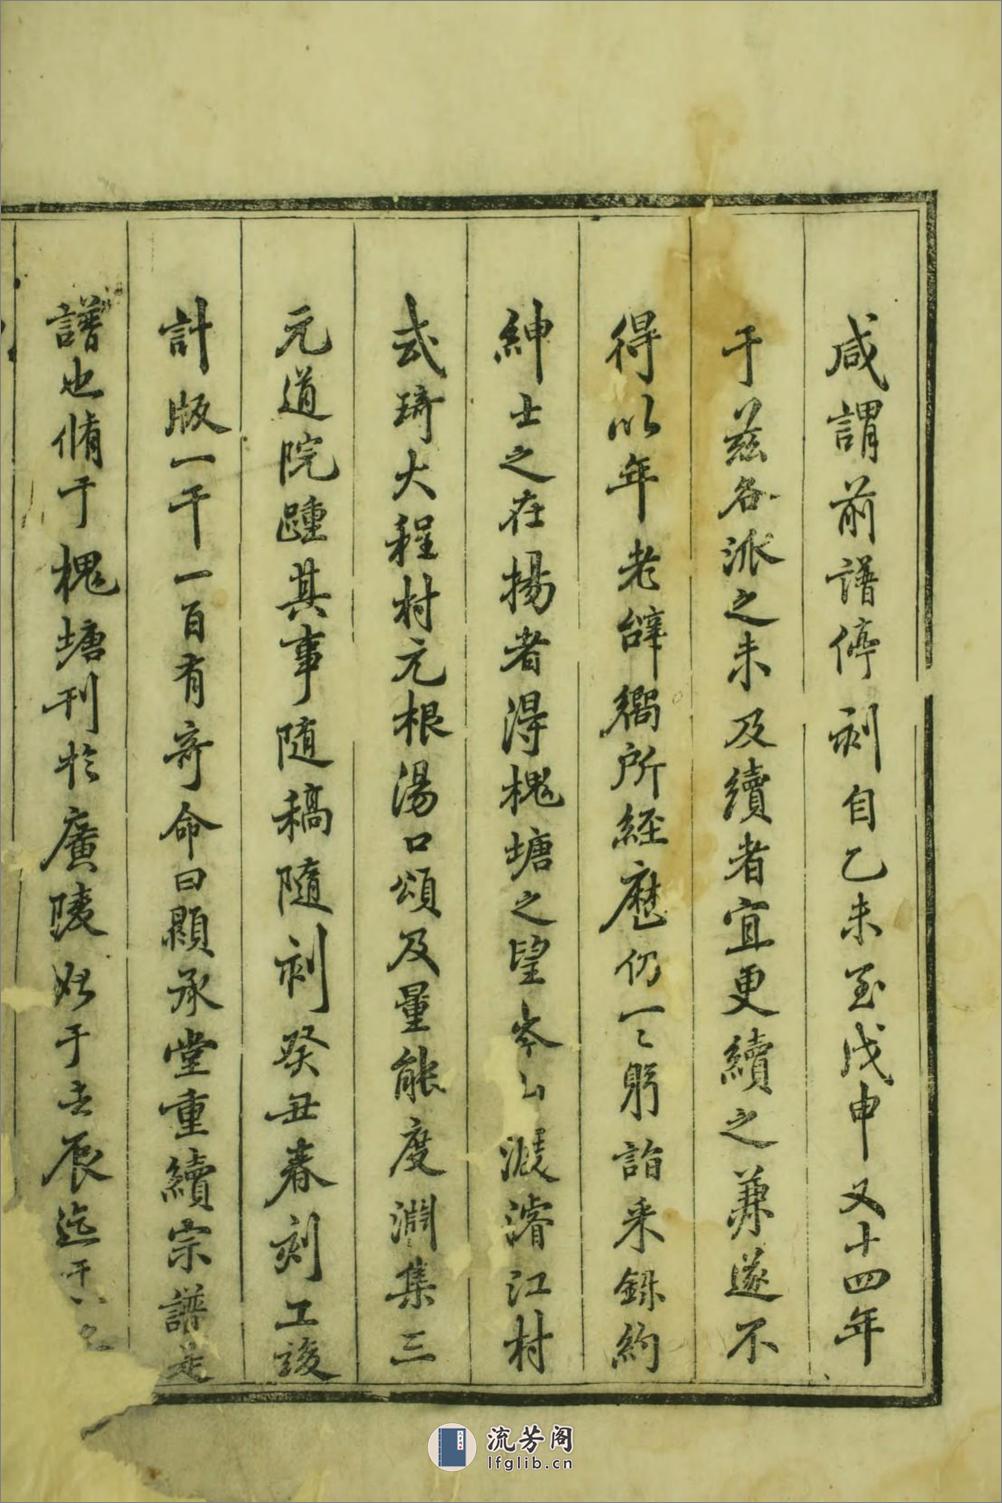 咸謂前譜停刻自乙未至戊申又十四年
于茲各派之未及續者宜更續之彛遂不
得以年老辭衟所經歷仍一ミ躬詣采録約
紳士之在揚者得槐塘之望岑公濈濬江村
弍琦大程村元根湯口頌及量能度淵集三
元道院踵其事隨稿隨刻癸丑春刻工竣
計版一千一百有奇命曰顯承堂重續宗譜是
譜也脩于槐塘刊於廣陵始于去辰迄于
流芳阁
lfglib.cn